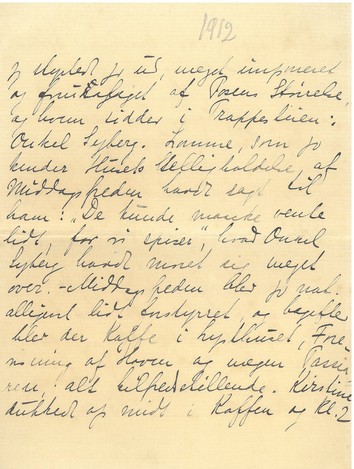 1912
og styrtede jo ud, meget imponeret
og af Posens Størrelse,
og hvem sidder i Trappestuen:
Onkel Syberg. Lomme, som jo
kender Husets Hefligholdelse af
Middagsfreden havde sagt til
ham: "De kunde maaske vente
lidt, for vi spiser", hvad Onkel
Syberg havde moret sig meget
over. - Middagsfreden blev jo nat-
ligvist lidt forstyrret, og bagefter
blev der Kaffe i Lysthuset, Fore-
visning af Haven og megen Passia-
ren, alt tilfredsstillende. Kirstine
dukkede op midt i Kaffen og Kl. 2